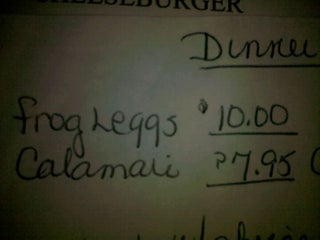 CHEESEBURGER
Dinner
Frog Leggs $10.00
Calamari $7.95